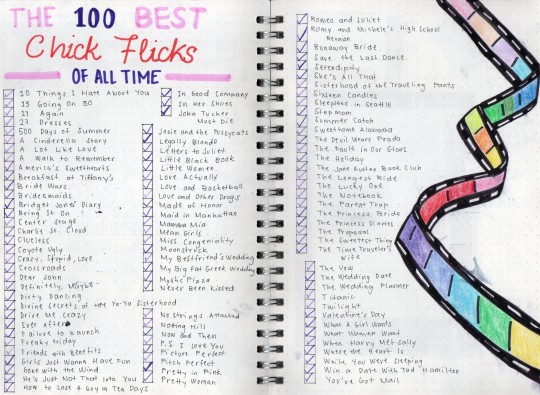 THE 100 BEST
Chick Flicks
OF ALL TIME
10 Things I Hate About You
13 Going On 30
17 Again
27 Dresses
500 Days of Summer
A Cinderella Story
A Lot Like Love
A Walk to Remember
America's Sweethearts
Breakfast at Tiffany's
Bride Wars
Bridesmaids
Bridget Jones' Diary
Bring It On
Center Stage
Charlie St. Cloud
Clueless
Coyote Ugly
Crazy, Stupid, Love
Crossroads
Dear John
Definitely, Maybe
Dirty Dancing
Divine Secrets of the Ya-Ya Sisterhood
Drive Me Crazy
Ever After
Failure to Launch
Freaky Friday
Friends with Benefits
Girls Just Wanna Have Fun
Gone with the Wind
He's Just Not That Into You
How to Lose a Guy in Ten Days
In Good Company
In Her Shoes
John Tucker
Must Die
Josie and the Pussycats
Legally Blonde
Letters to Juliet
Little Black Book
Little Women
Love Actually
Love and Basketball
Love and Other Drugs
Made of Honor
Maid in Manhattan
Mamma Mia
Mean Girls
Miss Congeniality
Moonstruck
My Bestfriend's Wedding
My Big Fat Greek Wedding
Mystic Pizza
Never Been Kissed
No Strings Attached
Notting Hill
Now and Then
P.S. I Love You
Picture Perfect
Pitch Perfect
Pretty in Pink
Pretty Woman
Romeo and Juliet
Romy and Michele's High School
Reunion
Runaway Bride
Save the Last Dance
Serendipity
She's All That
Sisterhood of the Traveling Pants
Sixteen Candles
Sleepless in Seattle
Stepmom
Summer Catch
Sweethome Alabama
The Devil Wears Prada
The Fault in Our Stars
The Holiday
The Jane Austen Book Club
The Longest Ride
The Lucky One
The Notebook
The Parent Trap
The Princess Bride
The Princess Diaries
The Proposal
The Sweetest Thing
The Time Traveler's
Wife
The Vow
The Wedding Date
The Wedding Planner
Titanic
Twilight
Valentine's Day
What A Girl Wants
What Women Want
When Harry Met Sally
Where the Heart Is
While You Were Sleeping
Win a Date With Tad Hamilton
You've Got Mail